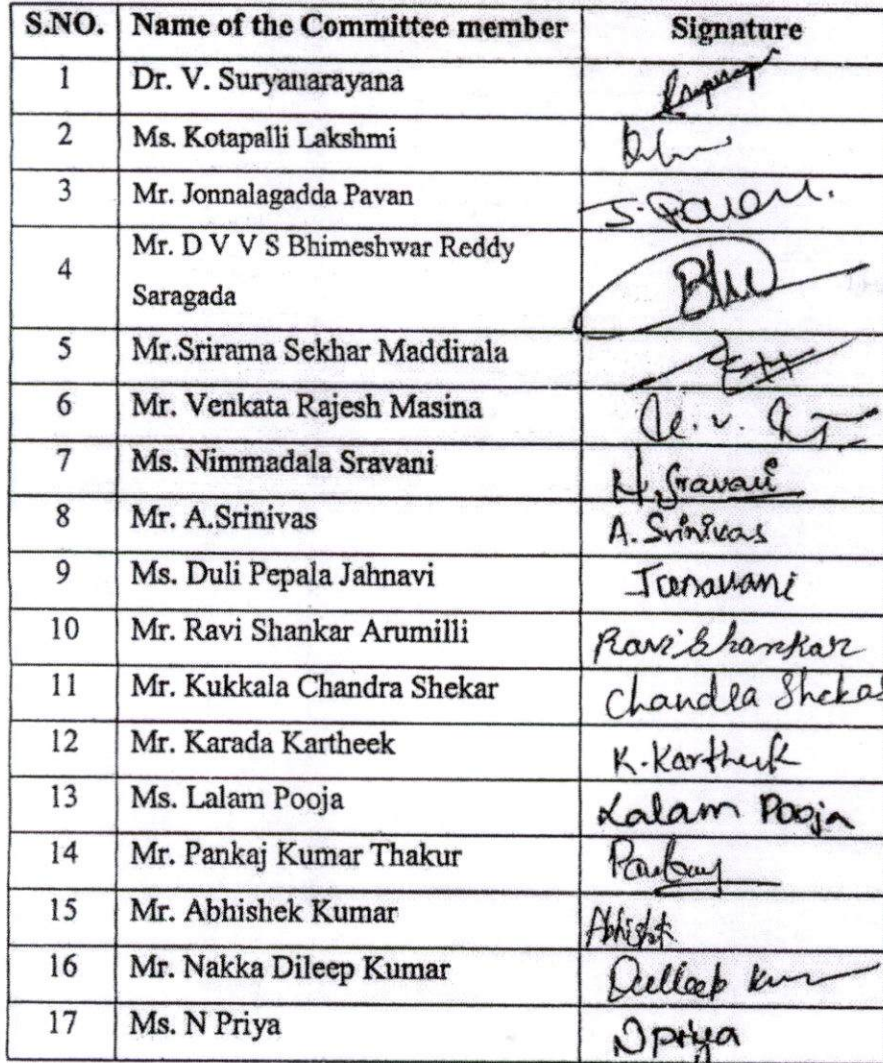 S.NO. Name of the Committee member Signature
1 Dr. V. Suryanarayana
2 Ms. Kotapalli Lakshmi
3 Mr. Jonnalagadda Pavan J. Pavan.
4 Mr. D V V S Bhimeshwar Reddy
Saragada
5 Mr.Srirama Sekhar Maddirala
6 Mr. Venkata Rajesh Masina
7 Ms. Nimmadala Sravani N. Sravani
8 Mr. A.Srinivas A. Srinivas
9 Ms. Duli Pepala Jahnavi
10 Mr. Ravi Shankar Arumilli Ravi Shankar
11 Mr. Kukkala Chandra Shekar Chandra Shekar
12 Mr. Karada Kartheek K. Kartheek
13 Ms. Lalam Pooja Lalam Pooja
14 Mr. Pankaj Kumar Thakur Pankaj
15 Mr. Abhishek Kumar Abhishek
16 Mr. Nakka Dileep Kumar
17 Ms. N Priya N priya